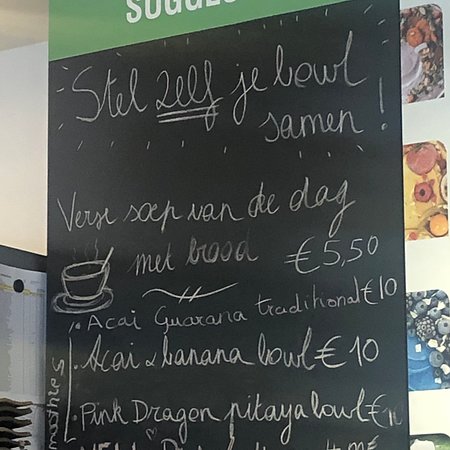 Stel zelf je bowl
samen !
Verse soep van de dag
met brood €5,50
. Acai Guarana traditional €10
. Acai & banana bowl €10
. Pink Dragon pitaya bowl €